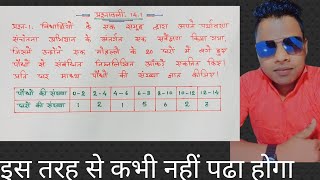 प्रश्नावली 14.1
प्रश्न-1. विद्यार्थियों के एक समूह द्वारा अपने पर्यावरण
संचेतना अभियान के अन्तर्गत एक सर्वेक्षण किया गया,
जिसमें उन्होंने एक मोहल्ले के 20 घरों में लगे हुए
पौधों से संबंधित निम्नलिखित आँकड़े एकत्रित किए।
प्रति घर माध्य पौधों की संख्या ज्ञात कीजिए।
पौधों की संख्या 0-2 2-4 4-6 6-8 8-10 10-12 12-14
घरों की संख्या 1 2 1 5 6 2 3
इस तरह से कभी नहीं पढा होगा